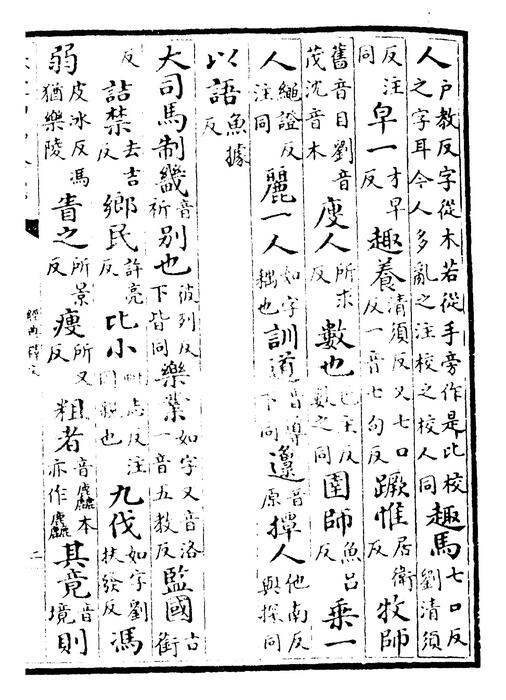 人戶教反字從木若從手旁作是比校之字耳今人多亂之注校之校人同趣馬七口反劉清須
反注同皁一才早反趣養清須反又七口反一音七句反蹶惟居衛反牧師
舊音目劉音茂沈音木廋人所求反數也色主反數之同圉師魚呂反乘一
人繩證反注同麗一人如字耦也訓道音導下同邍音原撢人他南反與探同
以語魚據反
大司馬制畿音祈別也彼列反下皆同樂業如字又音洛一音五教反監國古銜
反詰禁去吉反鄉民許亮反比小毗志反注同親也九伐如字劉扶發反馮
弱皮冰反馮猶樂陵眚之所景反瘦所又反粗者音麤本亦作麤其竟音境則
經典釋文
二